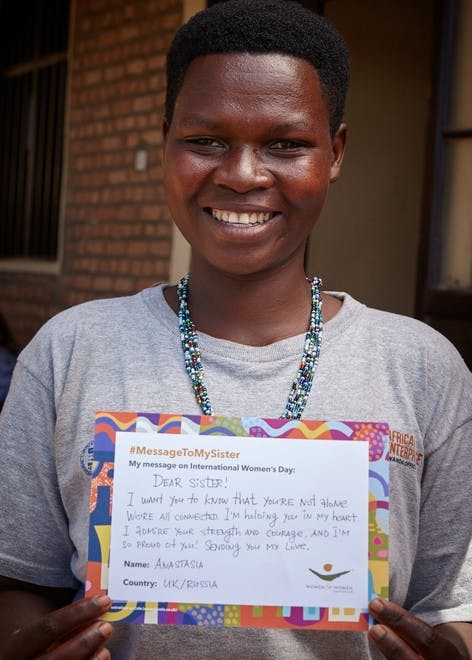 #MessageToMySister
My message on International Women's Day:
DEAR SISTER!
I WANT YOU TO KNOW THAT YOU'RE NOT ALONE
WE'RE ALL CONNECTED. I'M HOLDING YOU IN MY HEART
I ADMIRE YOUR STRENGTH AND COURAGE, AND I'M
SO PROUD OF YOU! SENDING YOU MY LOVE.
Name: ANASTASIA
Country: UK/RUSSIA
WOMEN for WOMEN
AFRICA